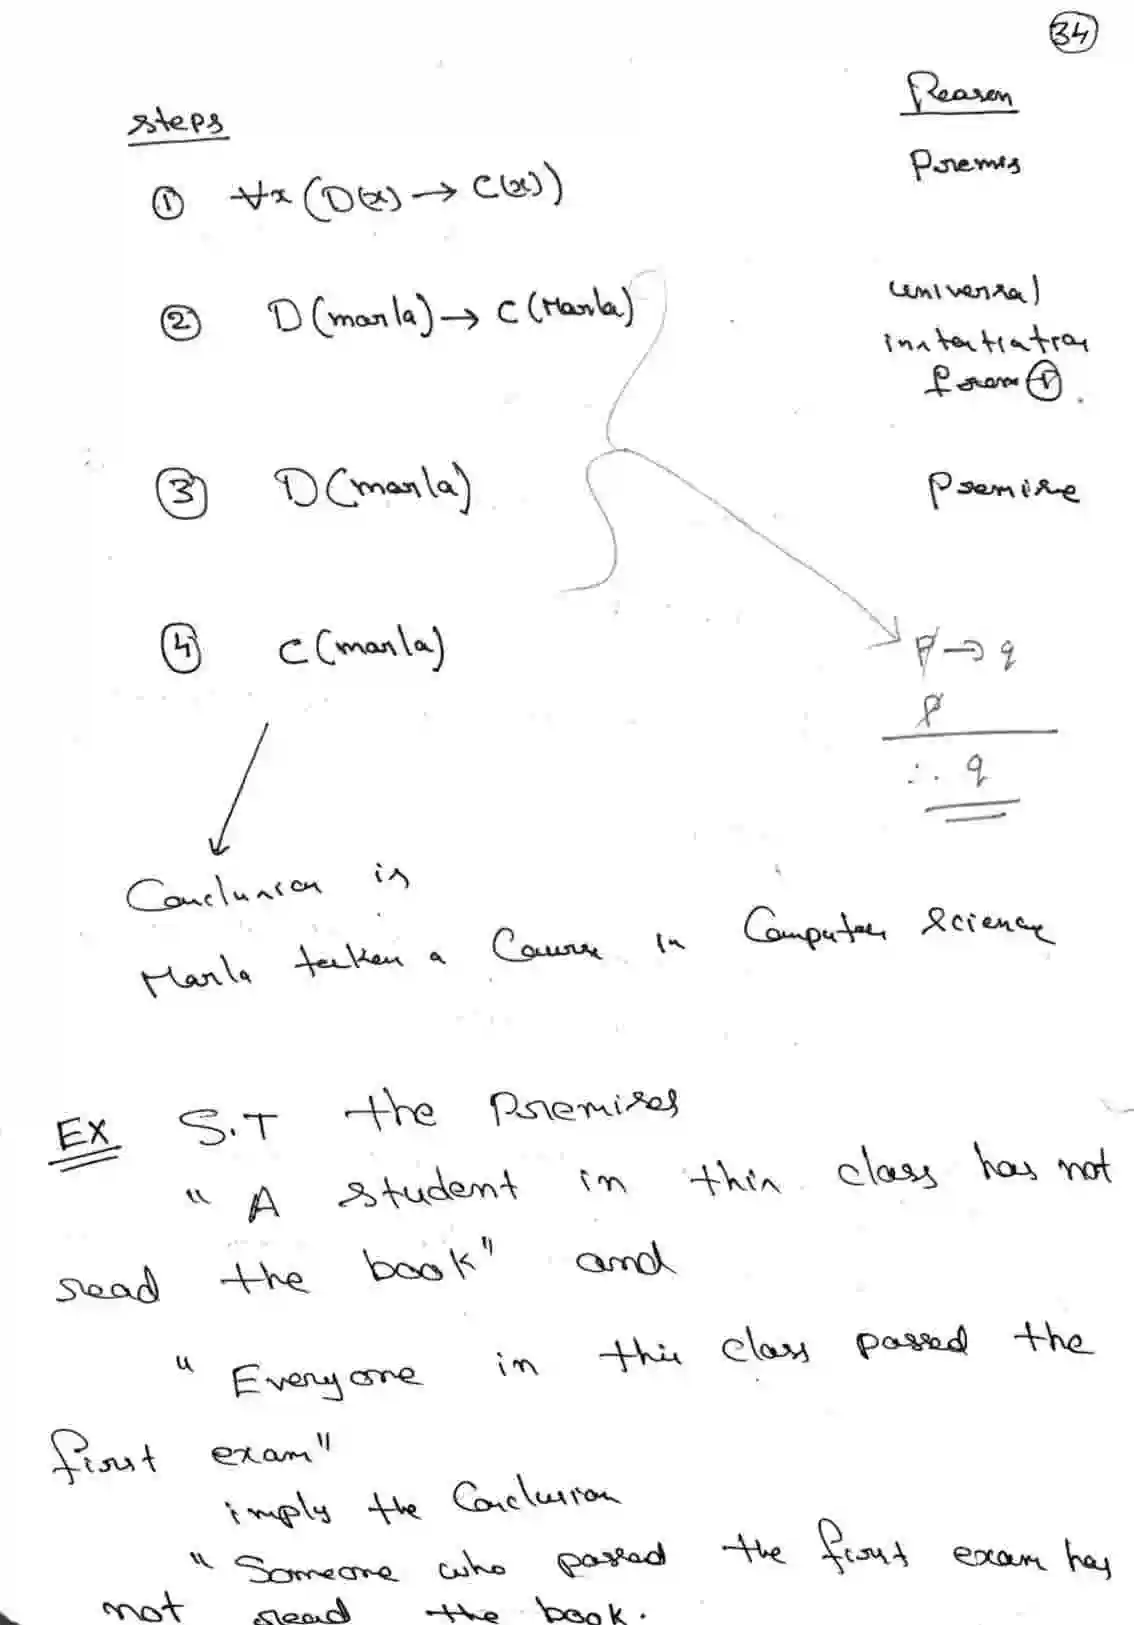 34
steps Reason
① ∀x (D(x) → C(x)) Premis
② D(marla) → C(Marla) universal
instantiation
from ①.
③ D(marla) Premise
④ C(marla)
P → q
P
∴ q
Conclusion is
Marla taken a Course in Computer Science
EX S.T the Premises
" A student in this class has not
read the book" and
" Everyone in this class passed the
first exam"
imply the Conclusion
" Someone who passed the first exam has
not read the book.